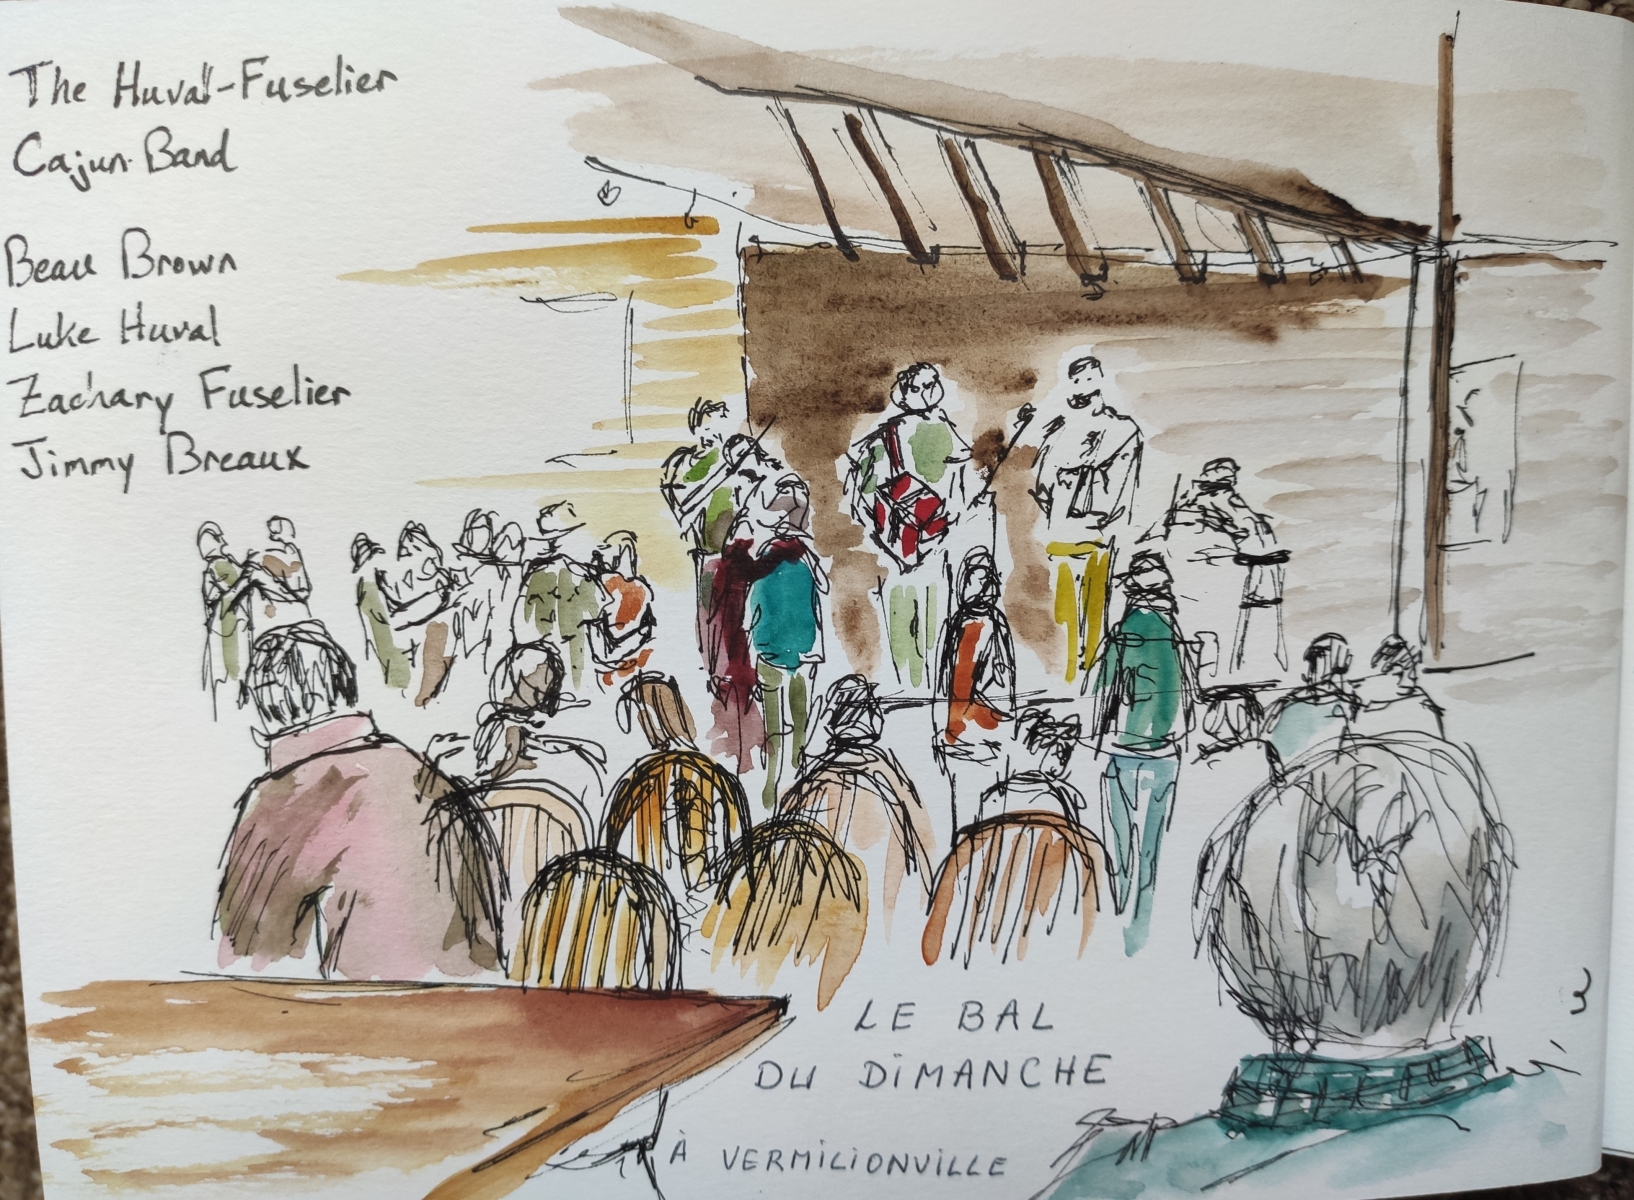 The Huval-Fuselier
Cajun Band
Beau Brown
Luke Huval
Zachary Fuselier
Jimmy Breaux
LE BAL
DU DIMANCHE
À VERMILIONVILLE